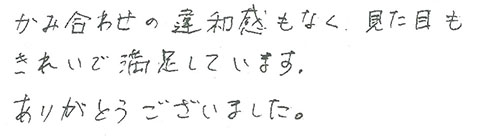 かみ合わせの違和感もなく、見た目も
きれいで満足しています。
ありがとうございました。